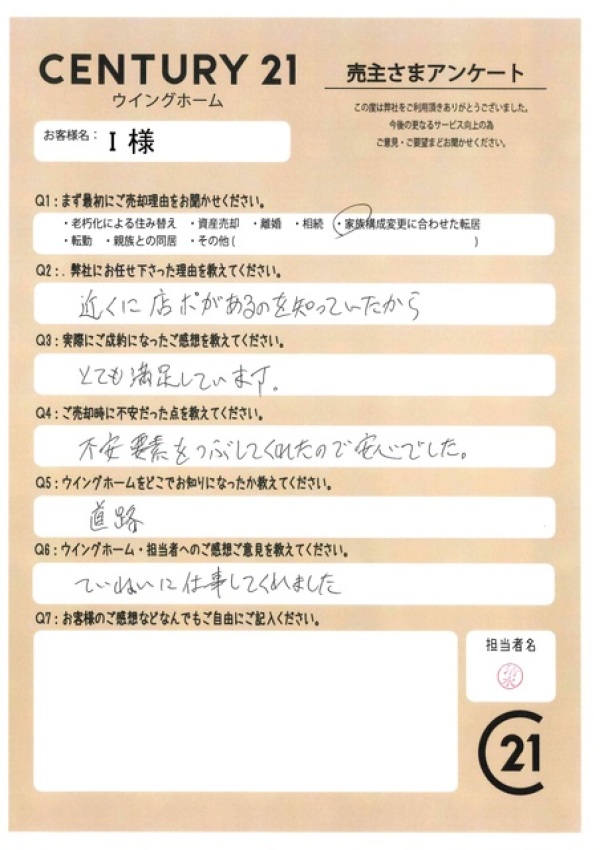 CENTURY 21
ウイングホーム
売主さまアンケート
この度は弊社をご利用頂きありがとうございました。
今後の更なるサービス向上の為
ご意見・ご要望まどお聞かせください。
お客様名： I 様
Q1：まず最初にご売却理由をお聞かせください。
・老朽化による住み替え ・資産売却 ・離婚 ・相続 ・家族構成変更に合わせた転居
・転勤 ・親族との同居 ・その他 ( )
Q2：. 弊社にお任せ下さった理由を教えてください。
近くに店ポがあるのを知っていたから
Q3：実際にご成約になったご感想を教えてください。
とても満足しています。
Q4：ご売却時に不安だった点を教えてください。
不安要素をつぶしてくれたので安心でした。
Q5：ウイングホームをどこでお知りになったか教えてください。
道路
Q6：ウイングホーム・担当者へのご感想ご意見を教えてください。
ていねいに仕事してくれました
Q7：お客様のご感想などなんでもご自由にご記入ください。
担当者名
C21